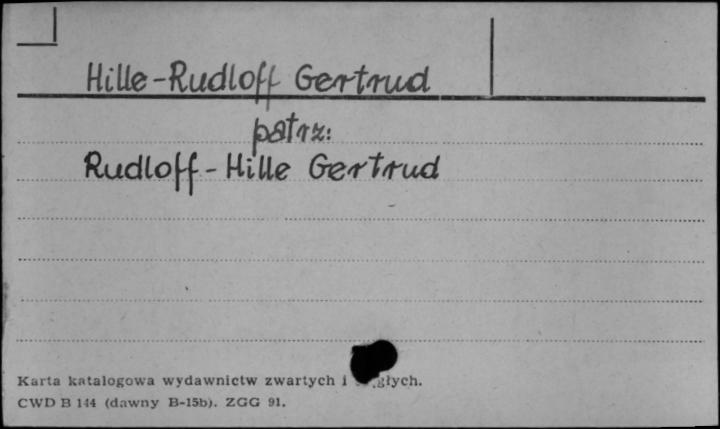 Hille-Rudloff Gertrud
patrz:
Rudloff-Hille Gertrud
Karta katalogowa wydawnictw zwartych i
CWD B 144 (dawny B-15b). ZGG 91.